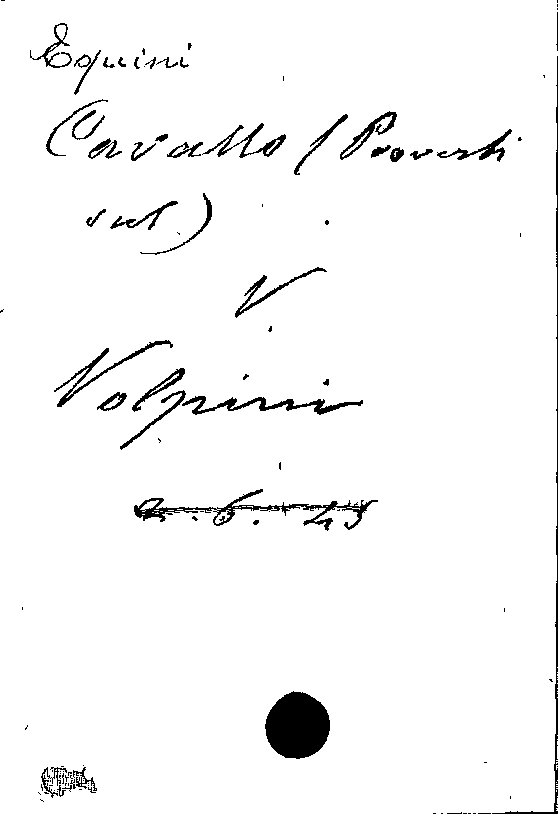 Equini
Cavallo (Proverbi
sul)
V.
Volpini
2.6.45